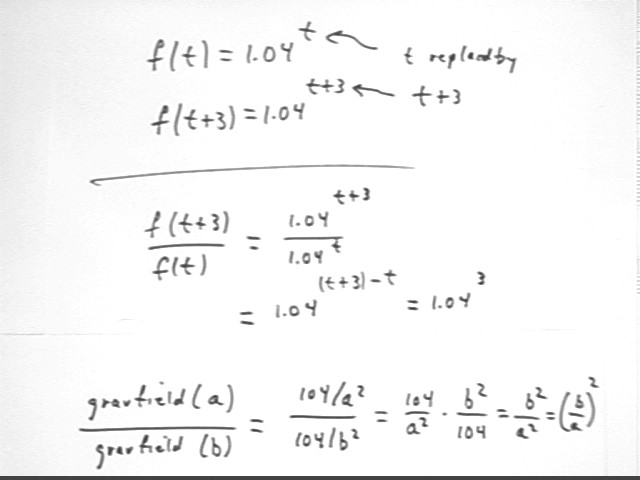 f(t) = 1.04^t ← t replaced by
f(t+3) = 1.04^{t+3} ← t+3
\frac{f(t+3)}{f(t)} = \frac{1.04^{t+3}}{1.04^t}
= 1.04^{(t+3)-t} = 1.04^3
\frac{gravfield(a)}{gravfield(b)} = \frac{104/a^2}{104/b^2} = \frac{104}{a^2} · \frac{b^2}{104} = \frac{b^2}{a^2} = (\frac{b}{a})^2